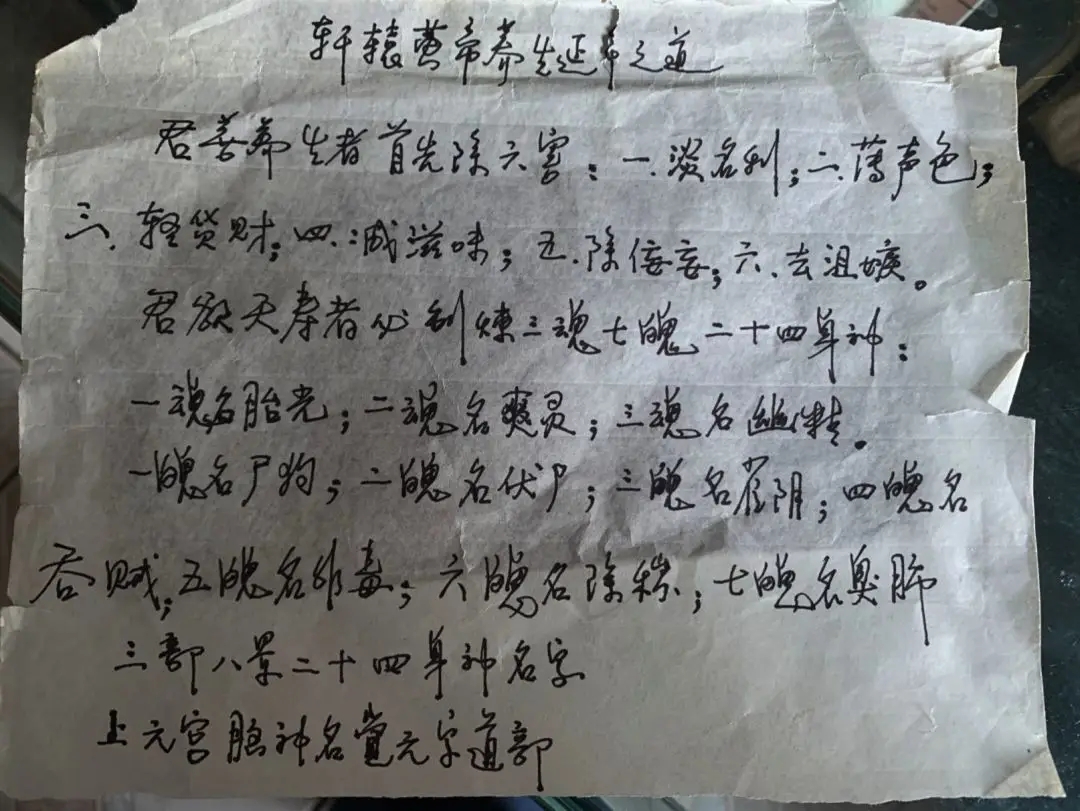 轩辕黄帝养生延年之道
君善养生者首先除六害：一.淡名利；二.薄声色；
三.轻货财；四.减滋味；五.除佞妄；六.去沮嫉。
君欲天寿者必制炼三魂七魄二十四身神：
一魂名胎光；二魂名爽灵；三魂名幽精。
一魄名尸狗；二魄名伏尸；三魄名雀阴；四魄名
吞贼；五魄名非毒；六魄名除秽；七魄名臭肺
三部八景二十四身神名字
上元宫脑神名觉元字道都